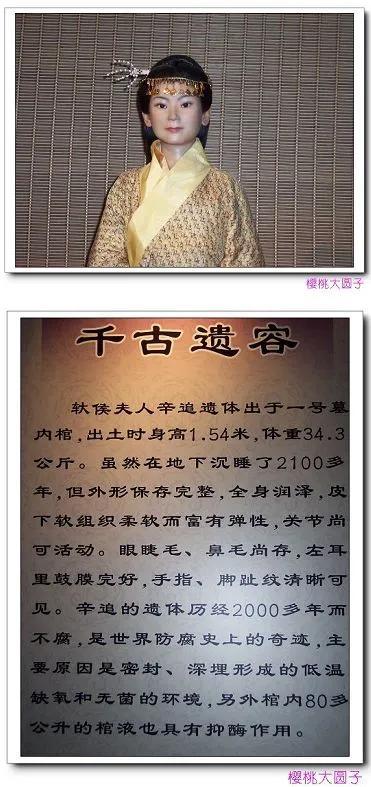 樱桃大圆子
千古遗容
轪侯夫人辛追遗体出于一号墓
内棺，出土时身高1.54米，体重34.3
公斤。虽然在地下沉睡了2100多
年，但外形保存完整，全身润泽，皮
下软组织柔软而富有弹性，关节尚
可活动。眼睫毛、鼻毛尚存，左耳
里鼓膜完好，手指、脚趾纹清晰可
见。辛追的遗体历经2000多年而
不腐，是世界防腐史上的奇迹，主
要原因是密封、深埋形成的低温
缺氧和无菌的环境，另外棺内80多
公升的棺液也具有抑酶作用。
樱桃大圆子